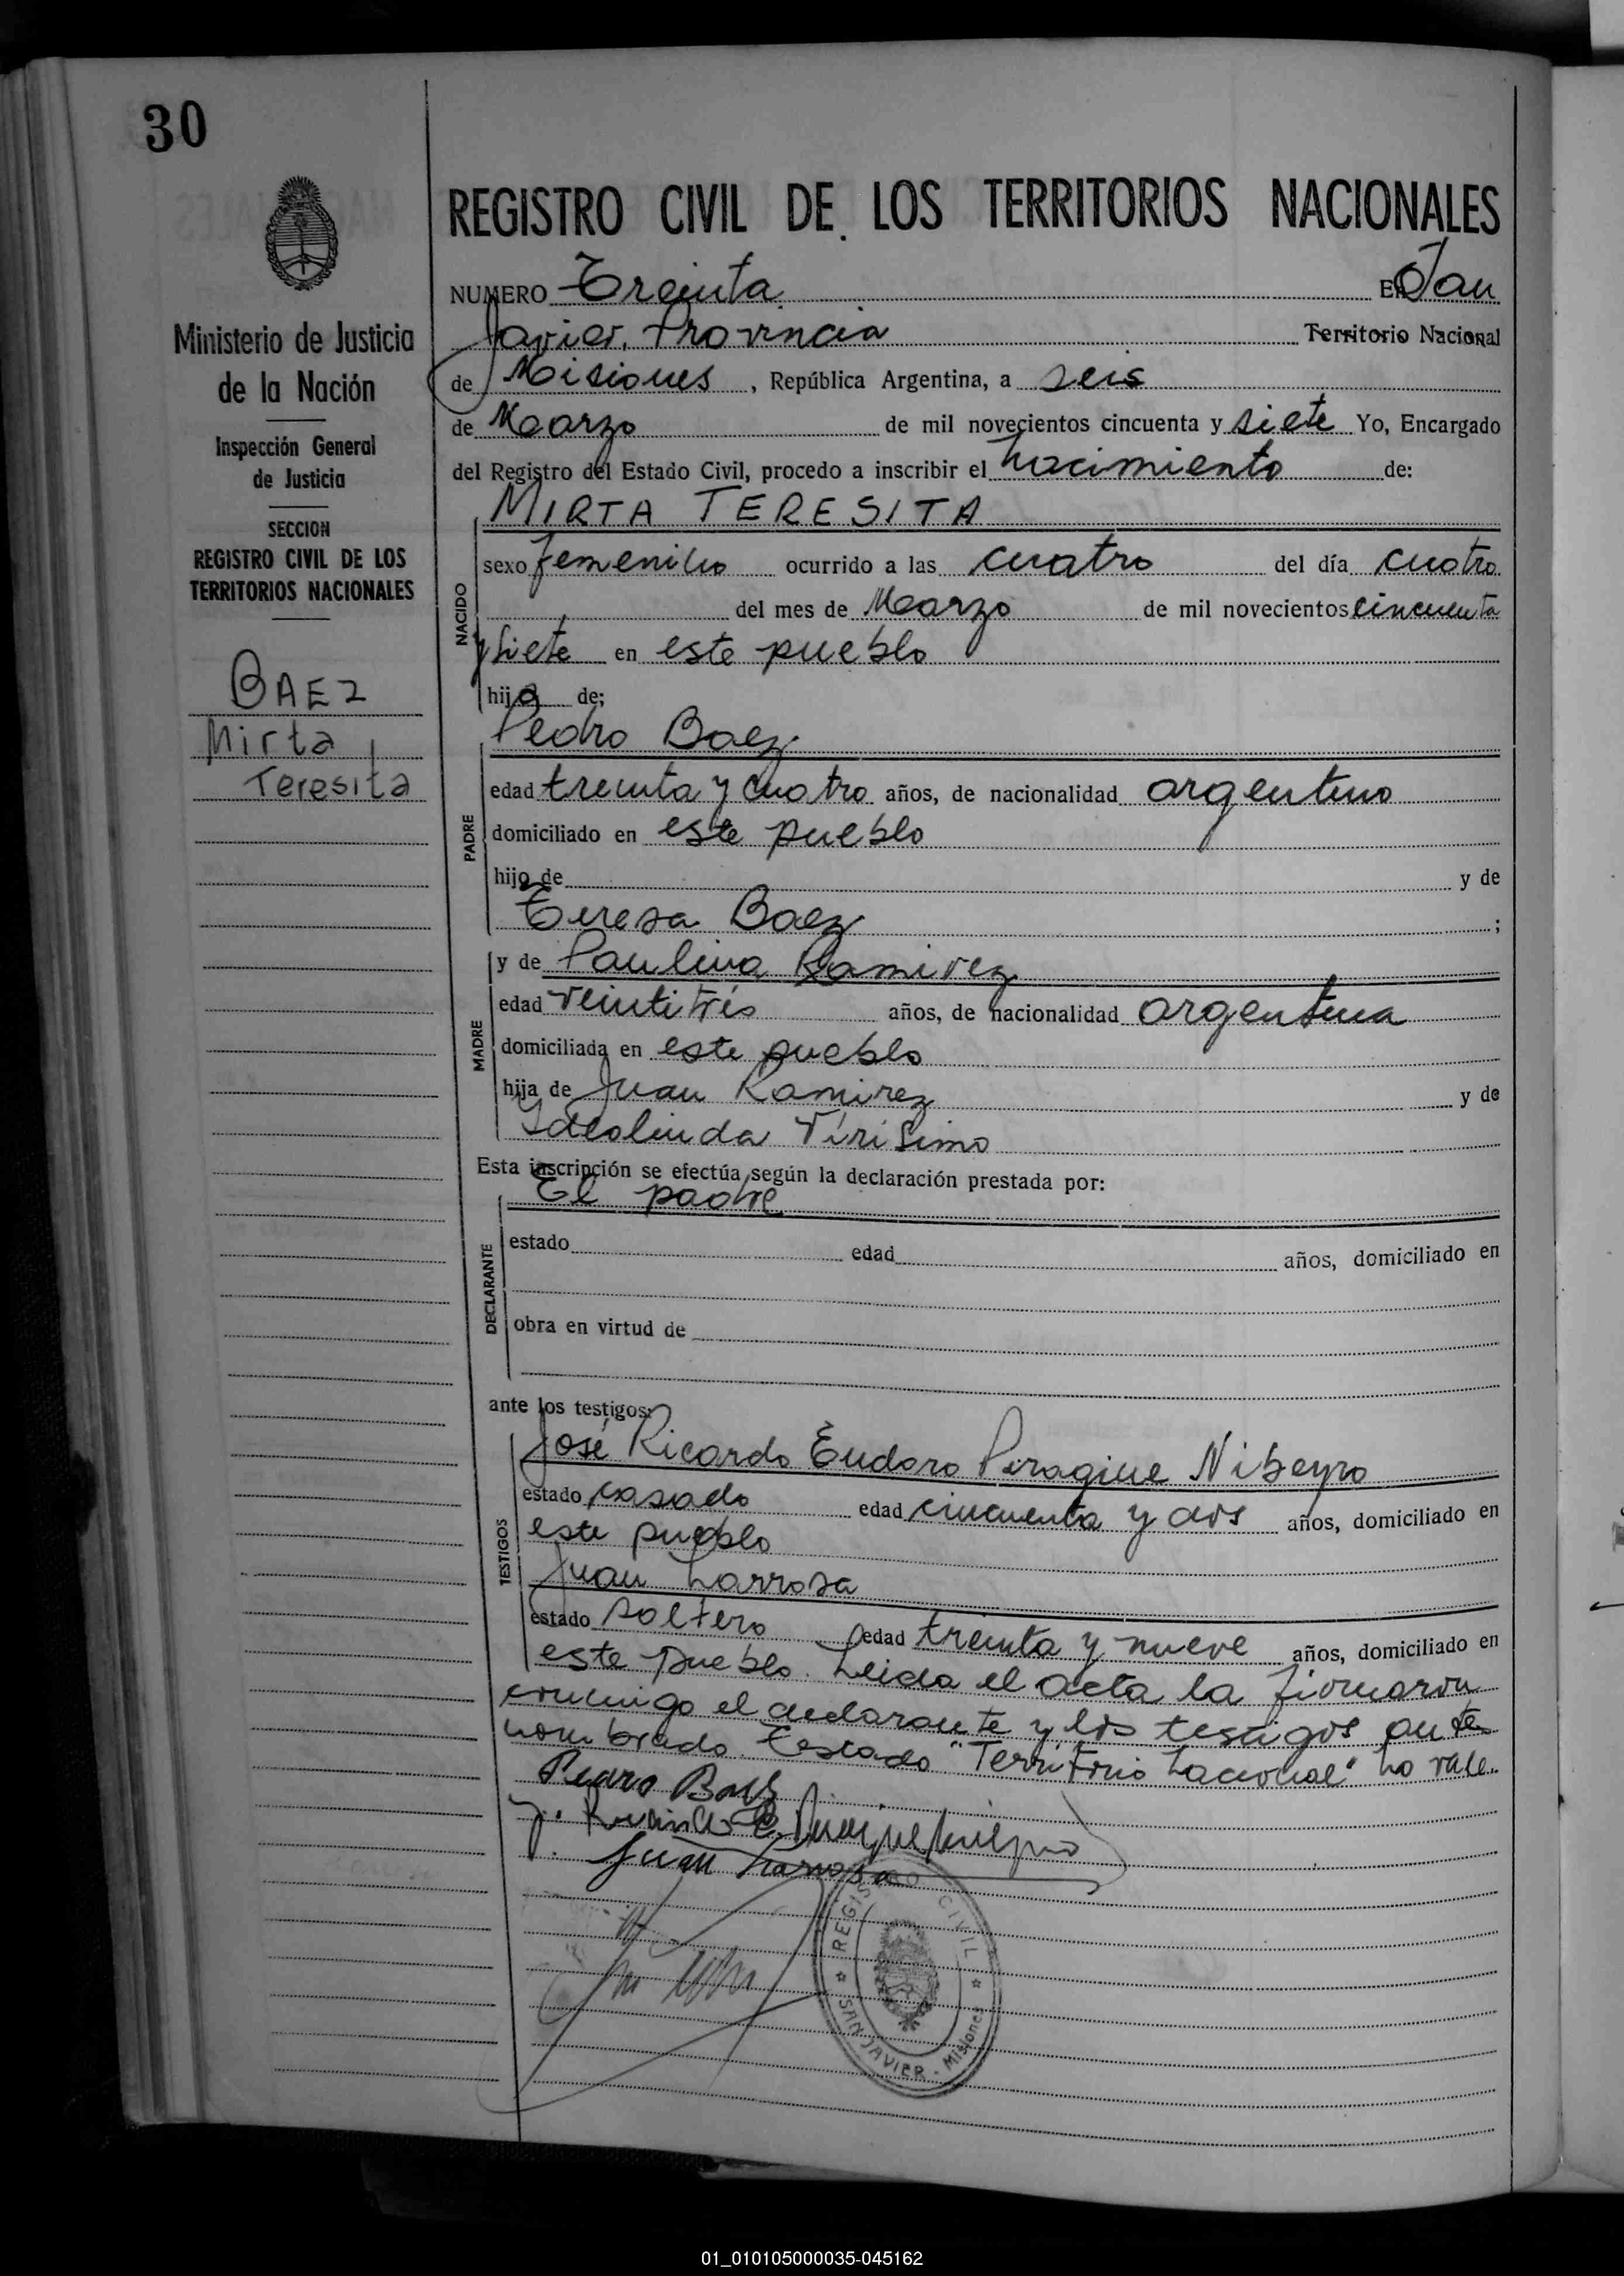 30
Ministerio de Justicia
de la Nación
Inspección General
de Justicia
SECCION
REGISTRO CIVIL DE LOS
TERRITORIOS NACIONALES
BAEZ
Mirta
Teresita
REGISTRO CIVIL DE LOS TERRITORIOS NACIONALES
NUMERO Treinta EN San
Javier, Provincia Territorio Nacional
de Misiones, República Argentina, a seis
de Marzo de mil novecientos cincuenta y siete Yo, Encargado
del Registro del Estado Civil, procedo a inscribir el nacimiento de:
MIRTA TERESITA
NACIDO
sexo femenino ocurrido a las cuatro del día cuatro
del mes de Marzo de mil novecientos cincuenta
y siete en este pueblo
hija de;
Pedro Baez
PADRE
edad treinta y cuatro años, de nacionalidad argentino
domiciliado en este pueblo
hijo de y de
Teresa Baez ;
y de Paulina Ramirez
MADRE
edad veintitrés años, de nacionalidad argentina
domiciliada en este pueblo
hija de Juan Ramirez y de
Ideolinda Virisimo
Esta inscripción se efectúa según la declaración prestada por:
El padre
DECLARANTE
estado edad años, domiciliado en
obra en virtud de
ante los testigos:
José Ricardo Eudoro Peragine Nibeyro
TESTIGOS
estado casado edad cincuenta y dos años, domiciliado en
este pueblo
Juan Larrosa
estado soltero edad treinta y nueve años, domiciliado en
este pueblo. Leida el acta la firmaron
conmigo el declarante y los testigos antes
nombrado. Testado "Territorio Nacional" no vale.
Pedro Baez
Juan Larrosa
REGISTRO CIVIL
SAN JAVIER - Misiones
01_010105000035-045162